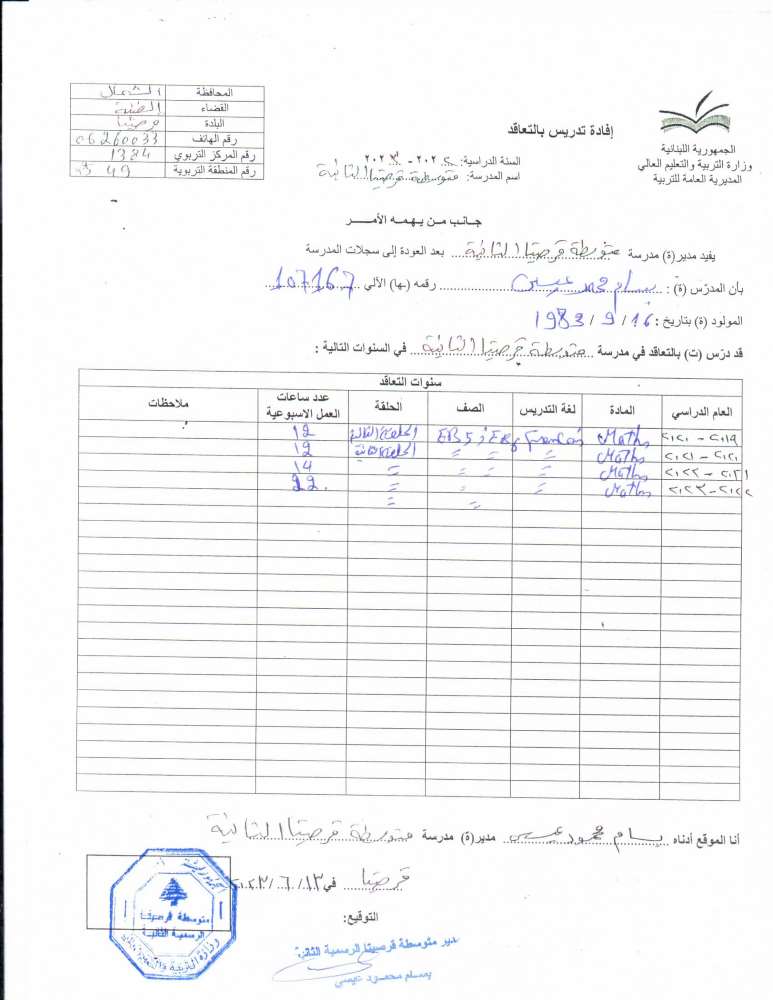 الجمهورية اللبنانية
وزارة التربية والتعليم العالي
المديرية العامة للتربية
إفادة تدريس بالتعاقد
السنة الدراسية: ٢٠٢٢ - ٢٠٢٣
اسم المدرسة: متوسطة قرصيتا الثانية
المحافظة الشمال
القضاء الضنية
البلدة قرصيتا
رقم الهاتف 06260033
رقم المركز التربوي 1334
رقم المنطقة التربوية
جانب من يهمه الأمر
يفيد مدير(ة) مدرسة متوسطة قرصيتا الثانية بعد العودة إلى سجلات المدرسة
بأن المدرّس (ة) : بسام محمد عيسى رقمه (ـها) الآلي 107167
المولود (ة) بتاريخ : 16 / 9 / 1983
قد درّس (ت) بالتعاقد في مدرسة متوسطة قرصيتا الثانية في السنوات التالية :
سنوات التعاقد
العام الدراسي المادة لغة التدريس الصف الحلقة عدد ساعات العمل الاسبوعية ملاحظات
٢٠١٩ - ٢٠٢٠ Maths Francais EB5 الحلقة الثالثة 12
٢٠٢٠ - ٢٠٢١ Maths = = = الحلقة الثانية 12
٢٠٢١ - ٢٠٢٢ Maths = = = = 14
٢٠٢٢ - ٢٠٢٣ Maths = = = 22
= =
أنا الموقع أدناه بسام محمود عيسى مدير(ة) مدرسة متوسطة قرصيتا الثانية
قرصيتا في ١٣ / ٦ / ٢٠٢٣
التوقيع:
متوسطة قرصيتا
الرسمية الثانية
مدير متوسطة قرصيتا الرسمية الثانية
بسام محمود عيسى